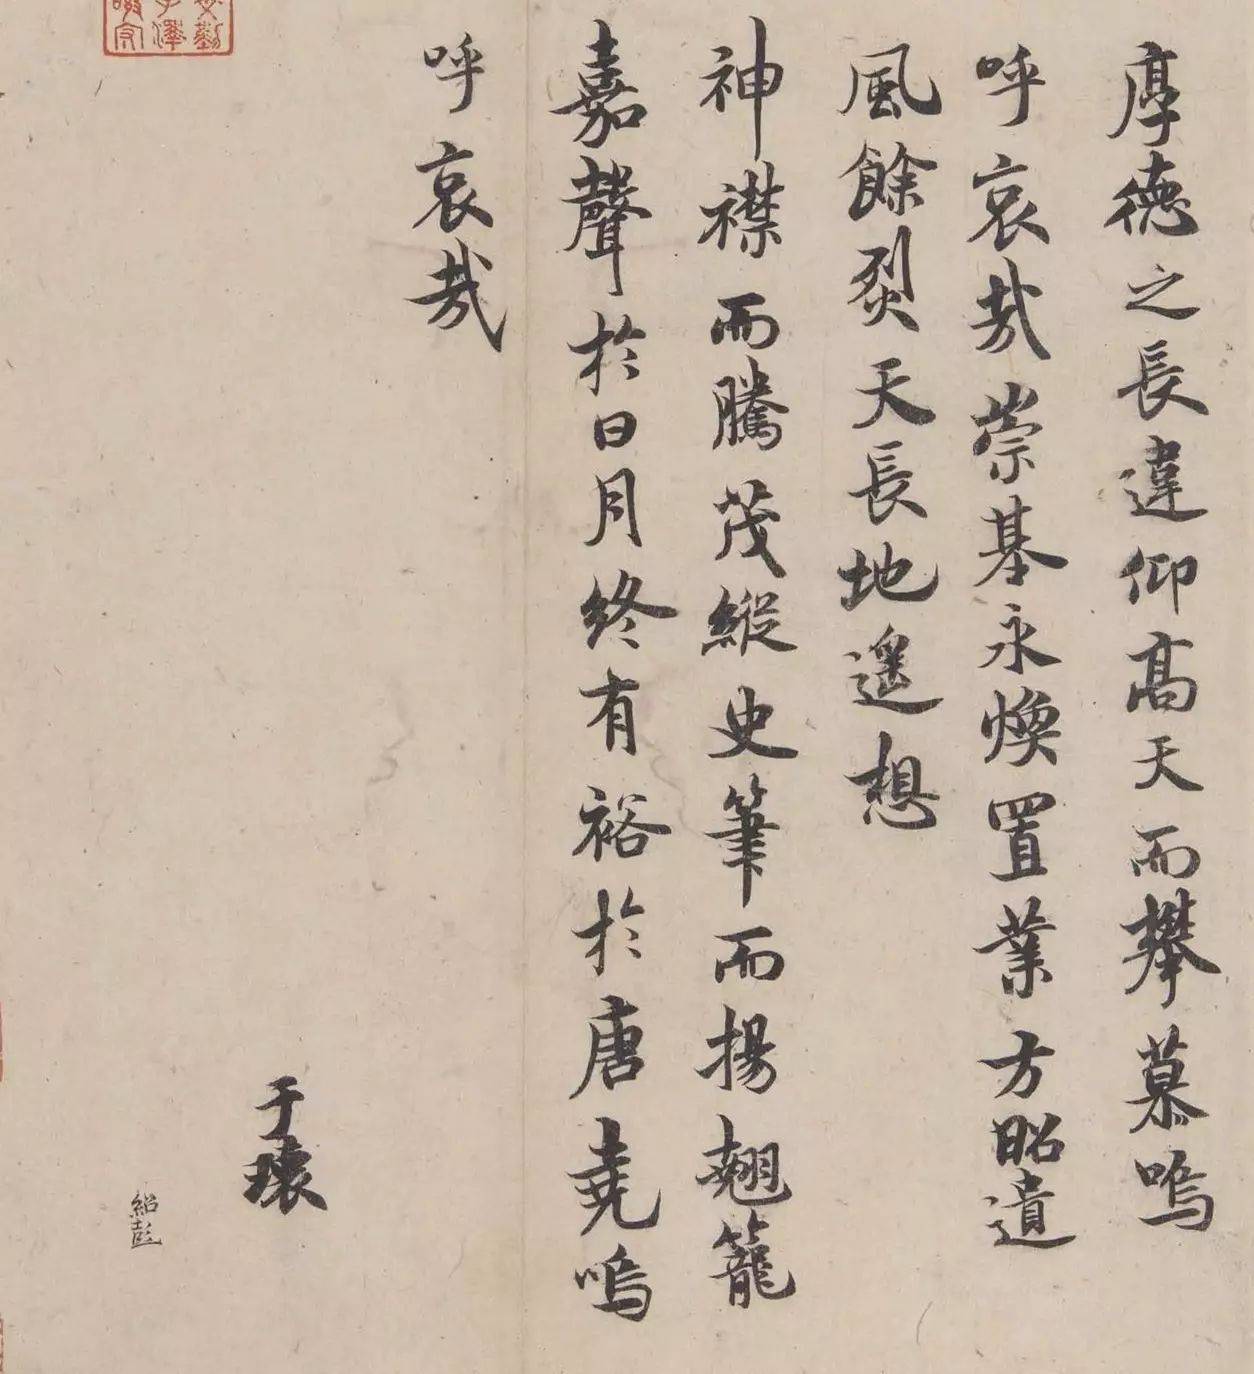 厚德之長違仰髙天而攀慕嗚
呼哀哉崇基永煥置業方昭遺
風餘烈天長地遥想
神襟而騰茂縱史筆而揚翹籠
嘉聲於日月終有裕於唐堯嗚
呼哀哉
于瓌
紹彭